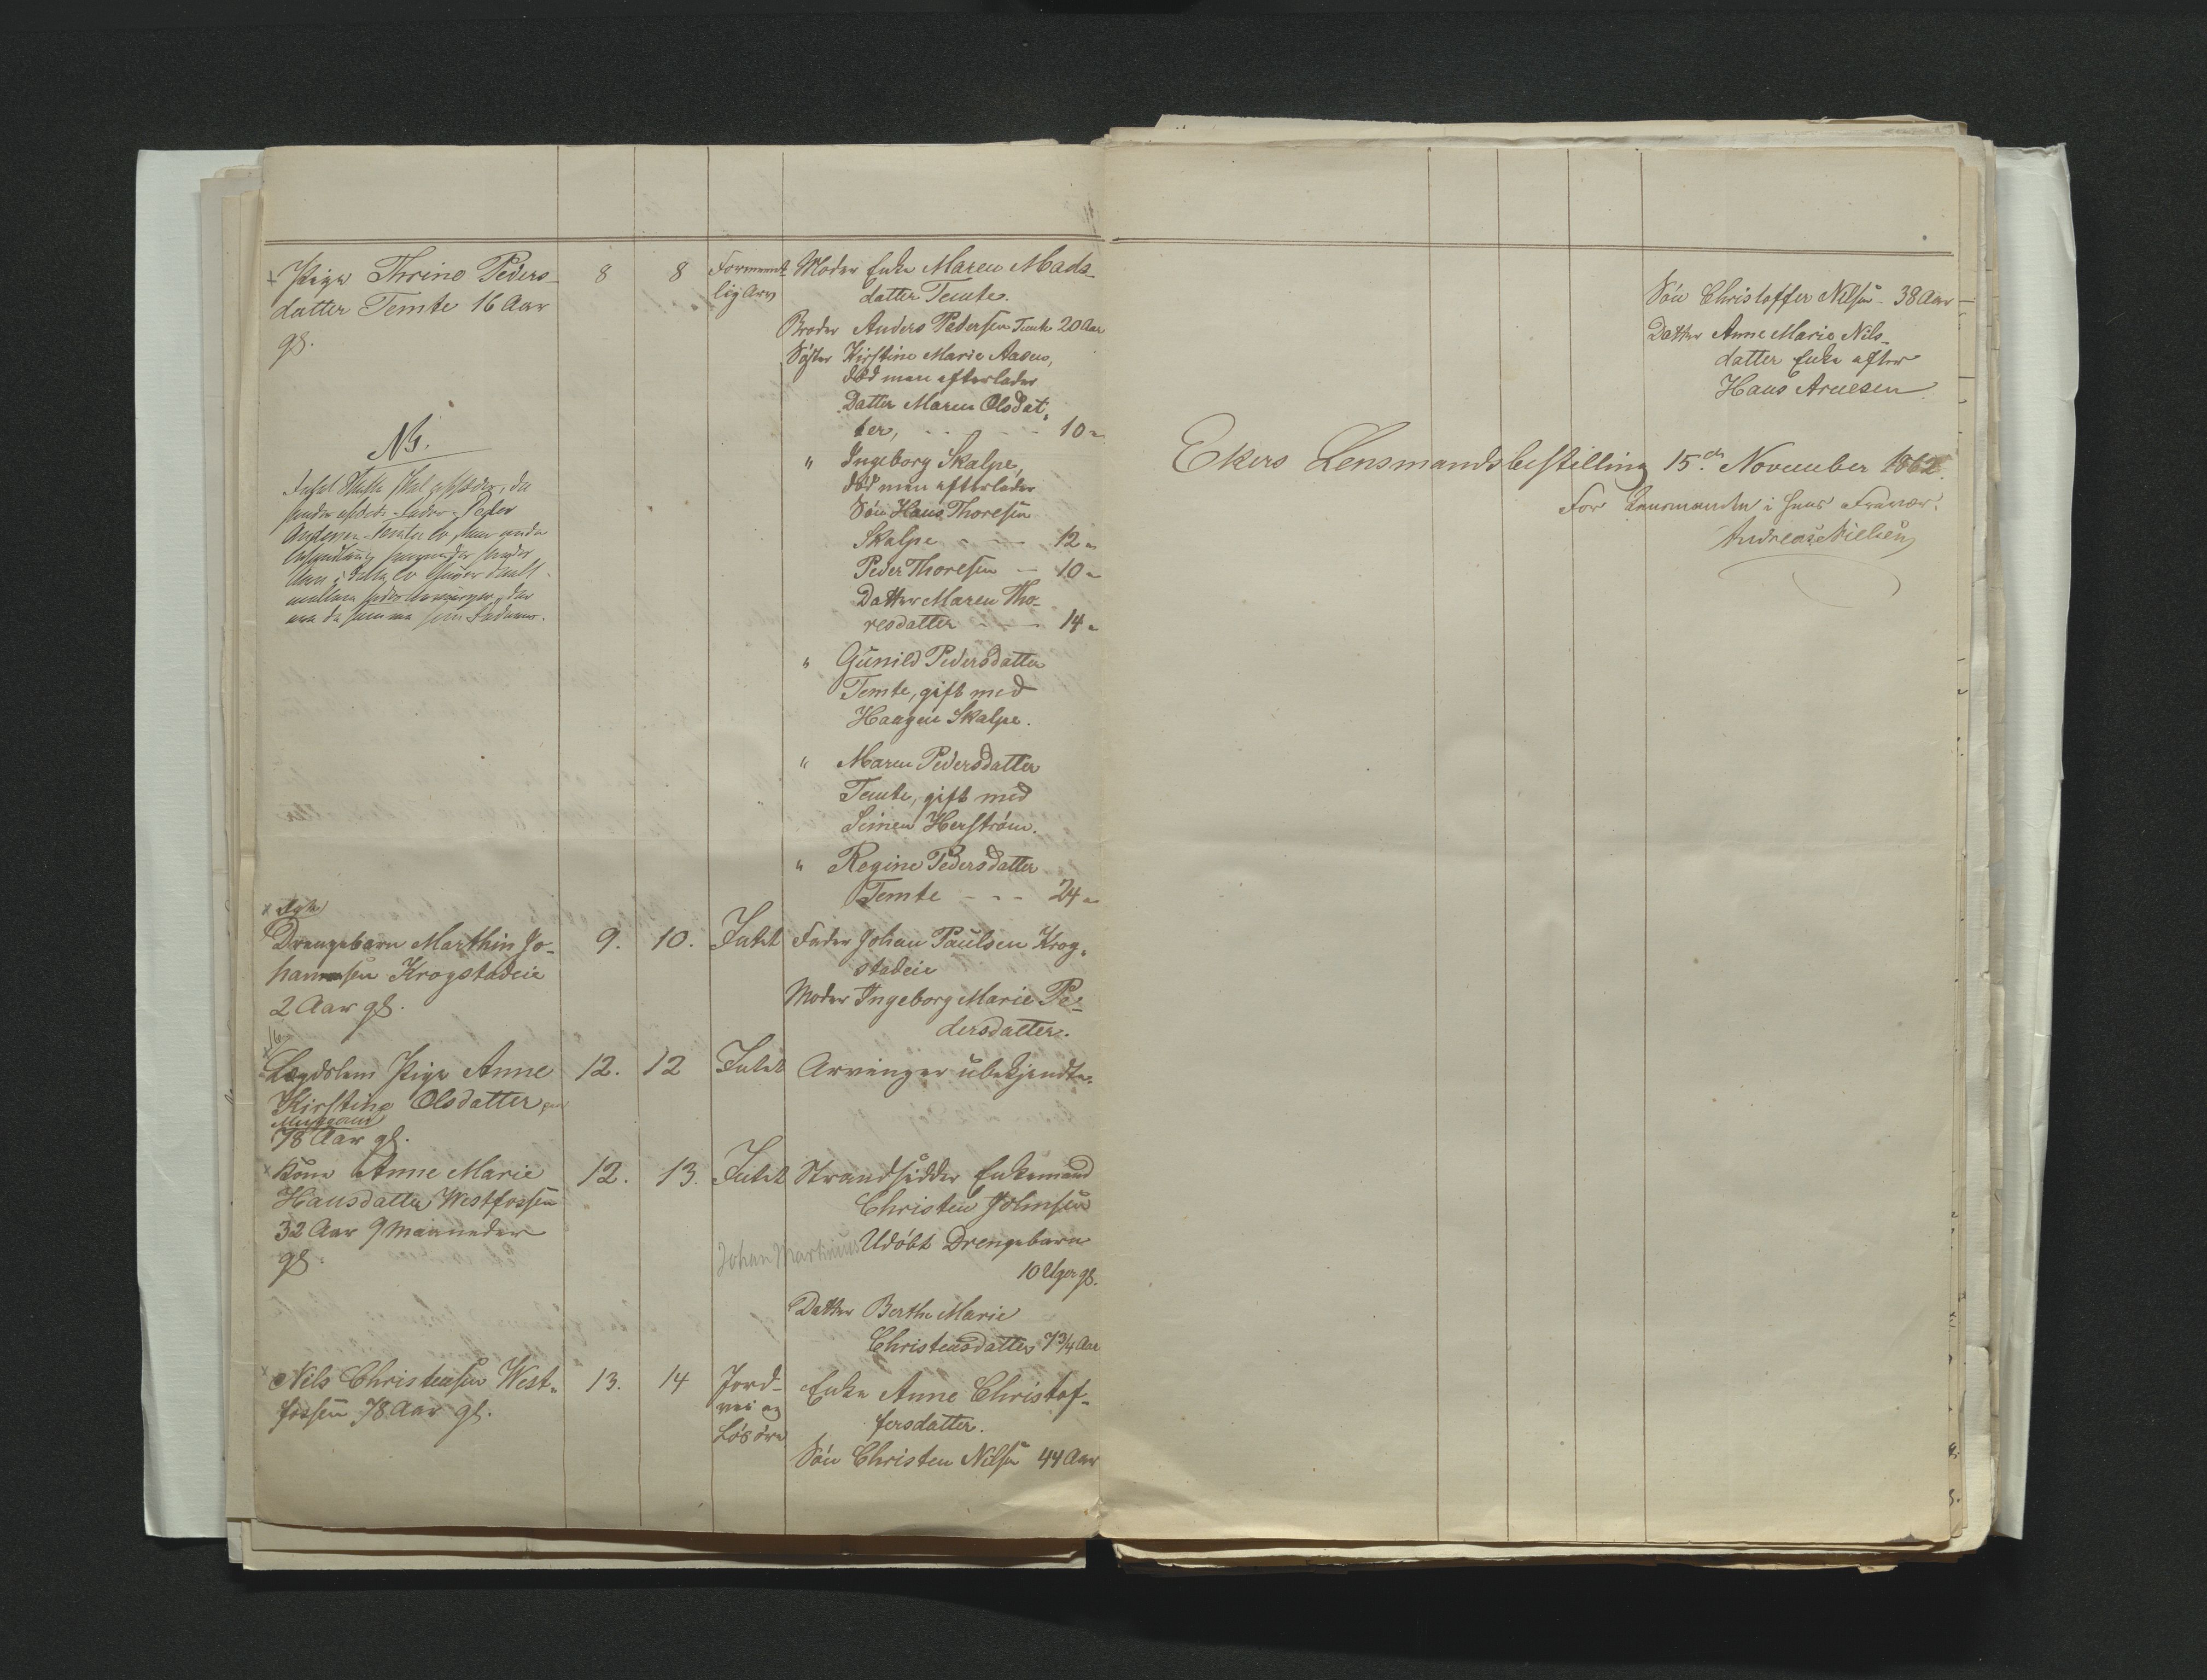 Pige Thrine Peders-
datter Temte 16 Aar
gl.
8
8
Forment-
lig Arv
Moder Enke Maren Mads-
datter Temte.
Broder Anders Pedersen Temte 20 Aar
Søster Kirstine Marie Aasen,
død men efterlader
Datter Maren Olsdat-
ter, - - - 10 "
" Ingeborg Skalpe,
død men efterlader
Søn Hans Thoresen
Skalpe - - 12 "
Peder Thoresen - 10 "
Datter Maren Tho-
resdatter - - 14 "
" Gunild Pedersdatter
Temte, gift med
Haagen Skalpe.
" Maren Pedersdatter
Temte, gift med
Simen Herstrøm.
" Regine Pedersdatter
Temte - - - 24 "
NB.
Peder
Drengebarn Marthin Jo-
hansen Krogstadeie
2 Aar gl.
9.
10.
Intet
Fader Johan Paulsen Krog-
stadeie
Moder Ingeborg Marie Pe-
dersdatter.
Lægdslem Pige Anne
Kirstine Olsdatter
78 Aar gl.
12.
12
Intet
Arvinger ubekjendte.
Kone Anne Marie
Hansdatter Westfossen
32 Aar 9 Maaneder
gl.
12.
13.
Intet
Strandsidder Enkemand
Christen Johnsen
Johan Martinius
Udøbt Drengebarn
10 Uger gl.
Datter Berthe Marie
Christensdatter 7 3/4 Aar
Nils Christensen West-
fossen 78 Aar gl.
13.
14
Jord-
vei og
Løsøre
Enke Anne Christof-
fersdatter.
Søn Christen Nilsen 44 Aar
Søn Christoffer Nilsen - 38 Aar
Datter Anne Marie Nils-
datter Enke efter
Hans Arnesen
Ekers Lensmandsbestilling 15de November 1862.
For Lensmanden i hans Fravær.
Andreas Nielsen